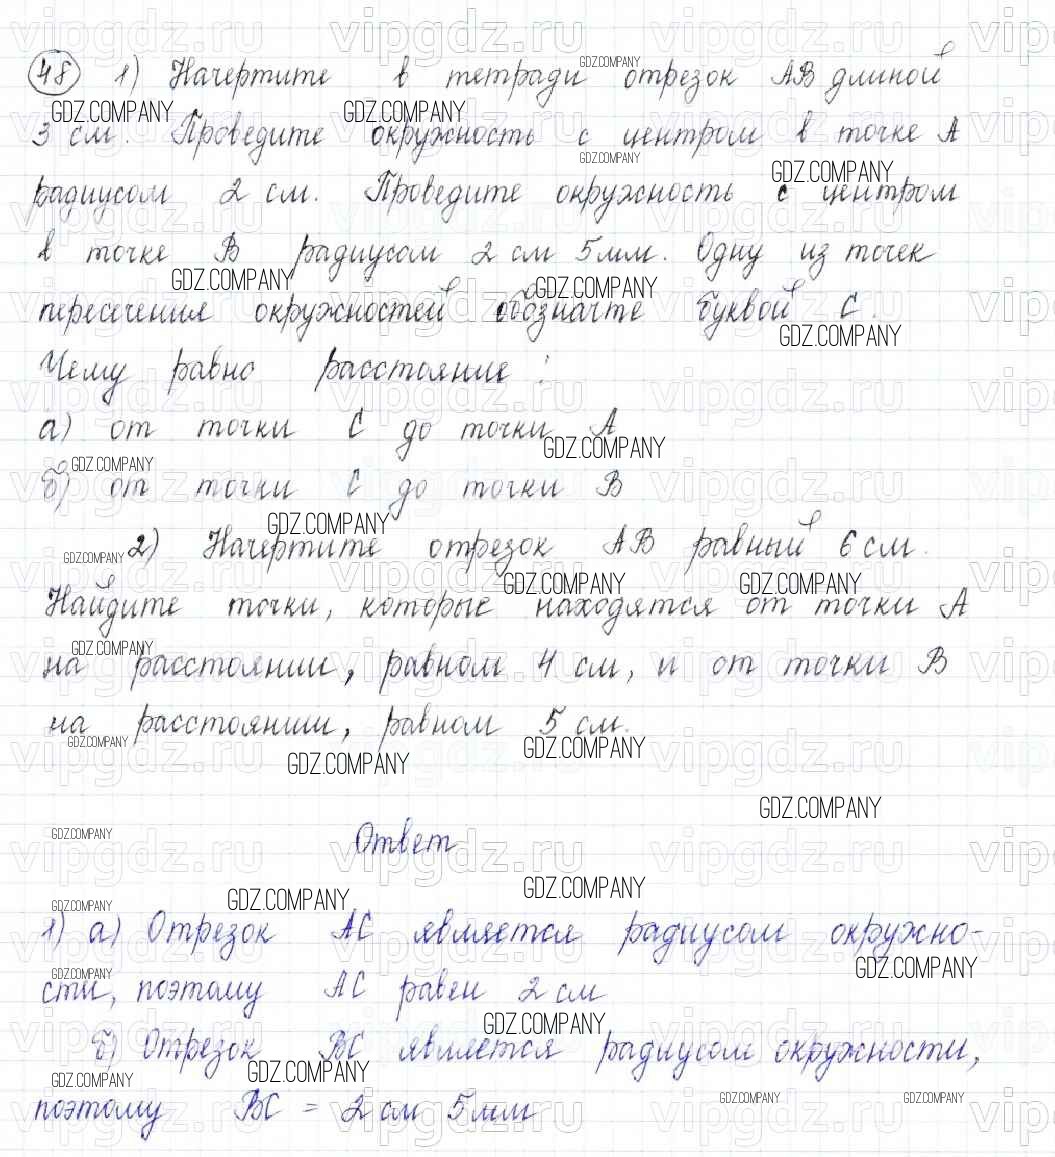 48 1) Начертите в тетради отрезок АВ длиной
3 см. Проведите окружность с центром в точке А
радиусом 2 см. Проведите окружность с центром
в точке В радиусом 2 см 5 мм. Одну из точек
пересечения окружностей обозначте буквой С.
Чему равно расстояние:
а) от точки С до точки А
б) от точки С до точки В
2) Начертите отрезок АВ равный 6 см.
Найдите точки, которые находятся от точки А
на расстоянии, равном 4 см, и от точки В
на расстоянии, равном 5 см.
Ответ
1) а) Отрезок АС является радиусом окружно-
сти, поэтому АС равен 2 см
б) Отрезок ВС является радиусом окружности,
поэтому ВС = 2 см 5 мм
GDZ.COMPANY
vipgdz.ru